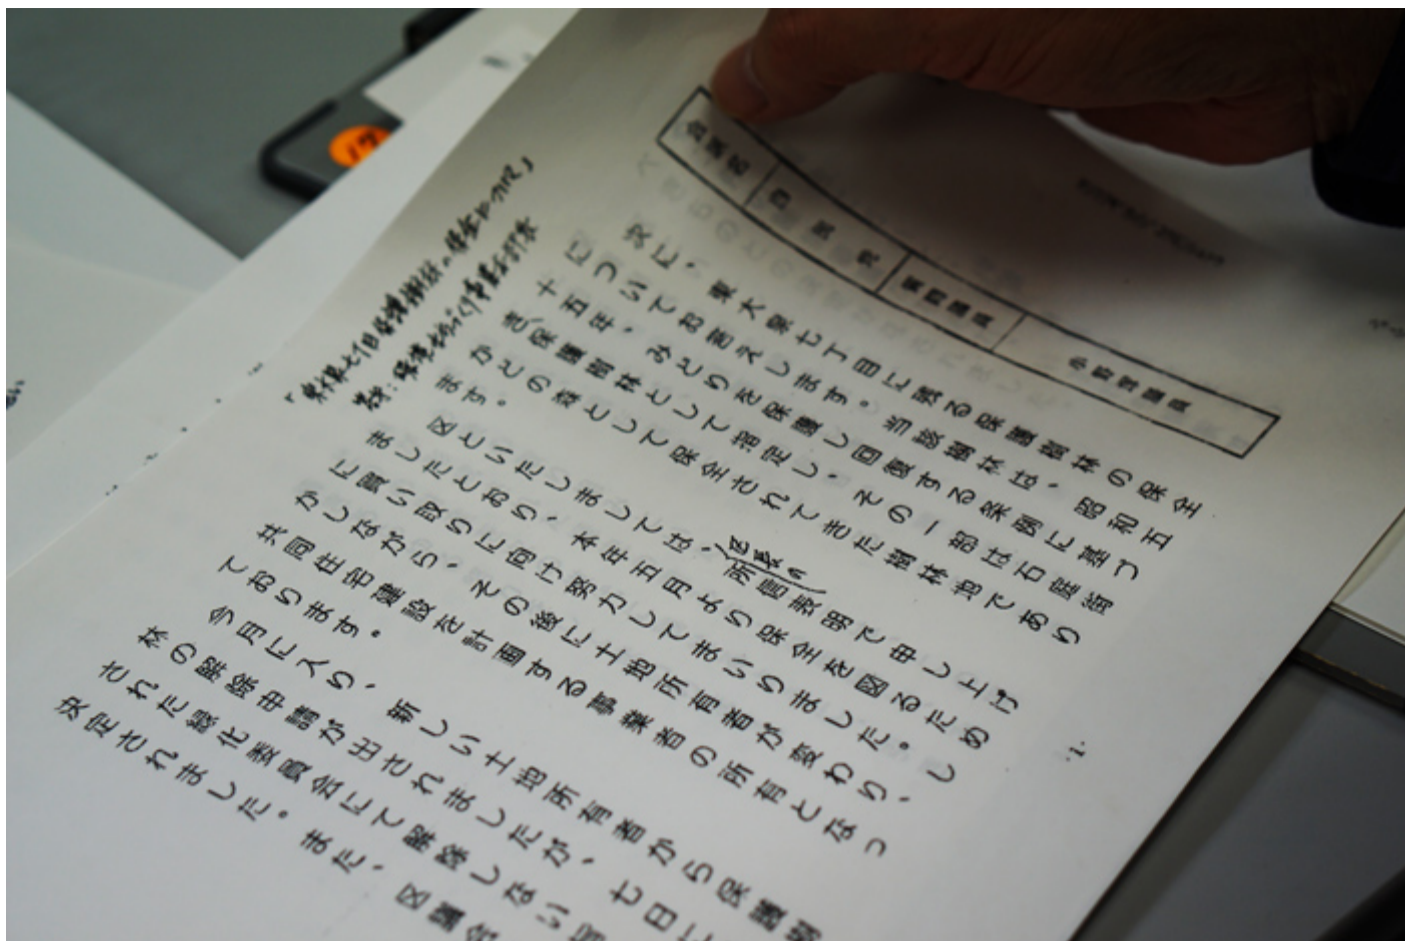 会派名 自民党 質問議員 小野塚議員
次に、東大泉七丁目に残る保護樹林の保全
についてお答えします。当該樹林は、昭和五
十五年、みどりを保護し回復する条例に基づ
き、保護樹林として指定し、その一部は石庭街
かどの森として保全されてきた樹林地であり
ます。
区といたしましては、区長の所信表明で申し上げ
ましたとおり、本年五月より保全を図るため
に買い取りに向け努力してまいりました。し
かしながら、その後に土地所有者が変わり、
共同住宅建設を計画する事業者の所有となっ
ております。
今月に入り、新しい土地所有者から保護樹
林の解除申請が出されましたが、七日に
された緑化委員会にて解除しない旨
決定されました。また、区議会
-1-
17